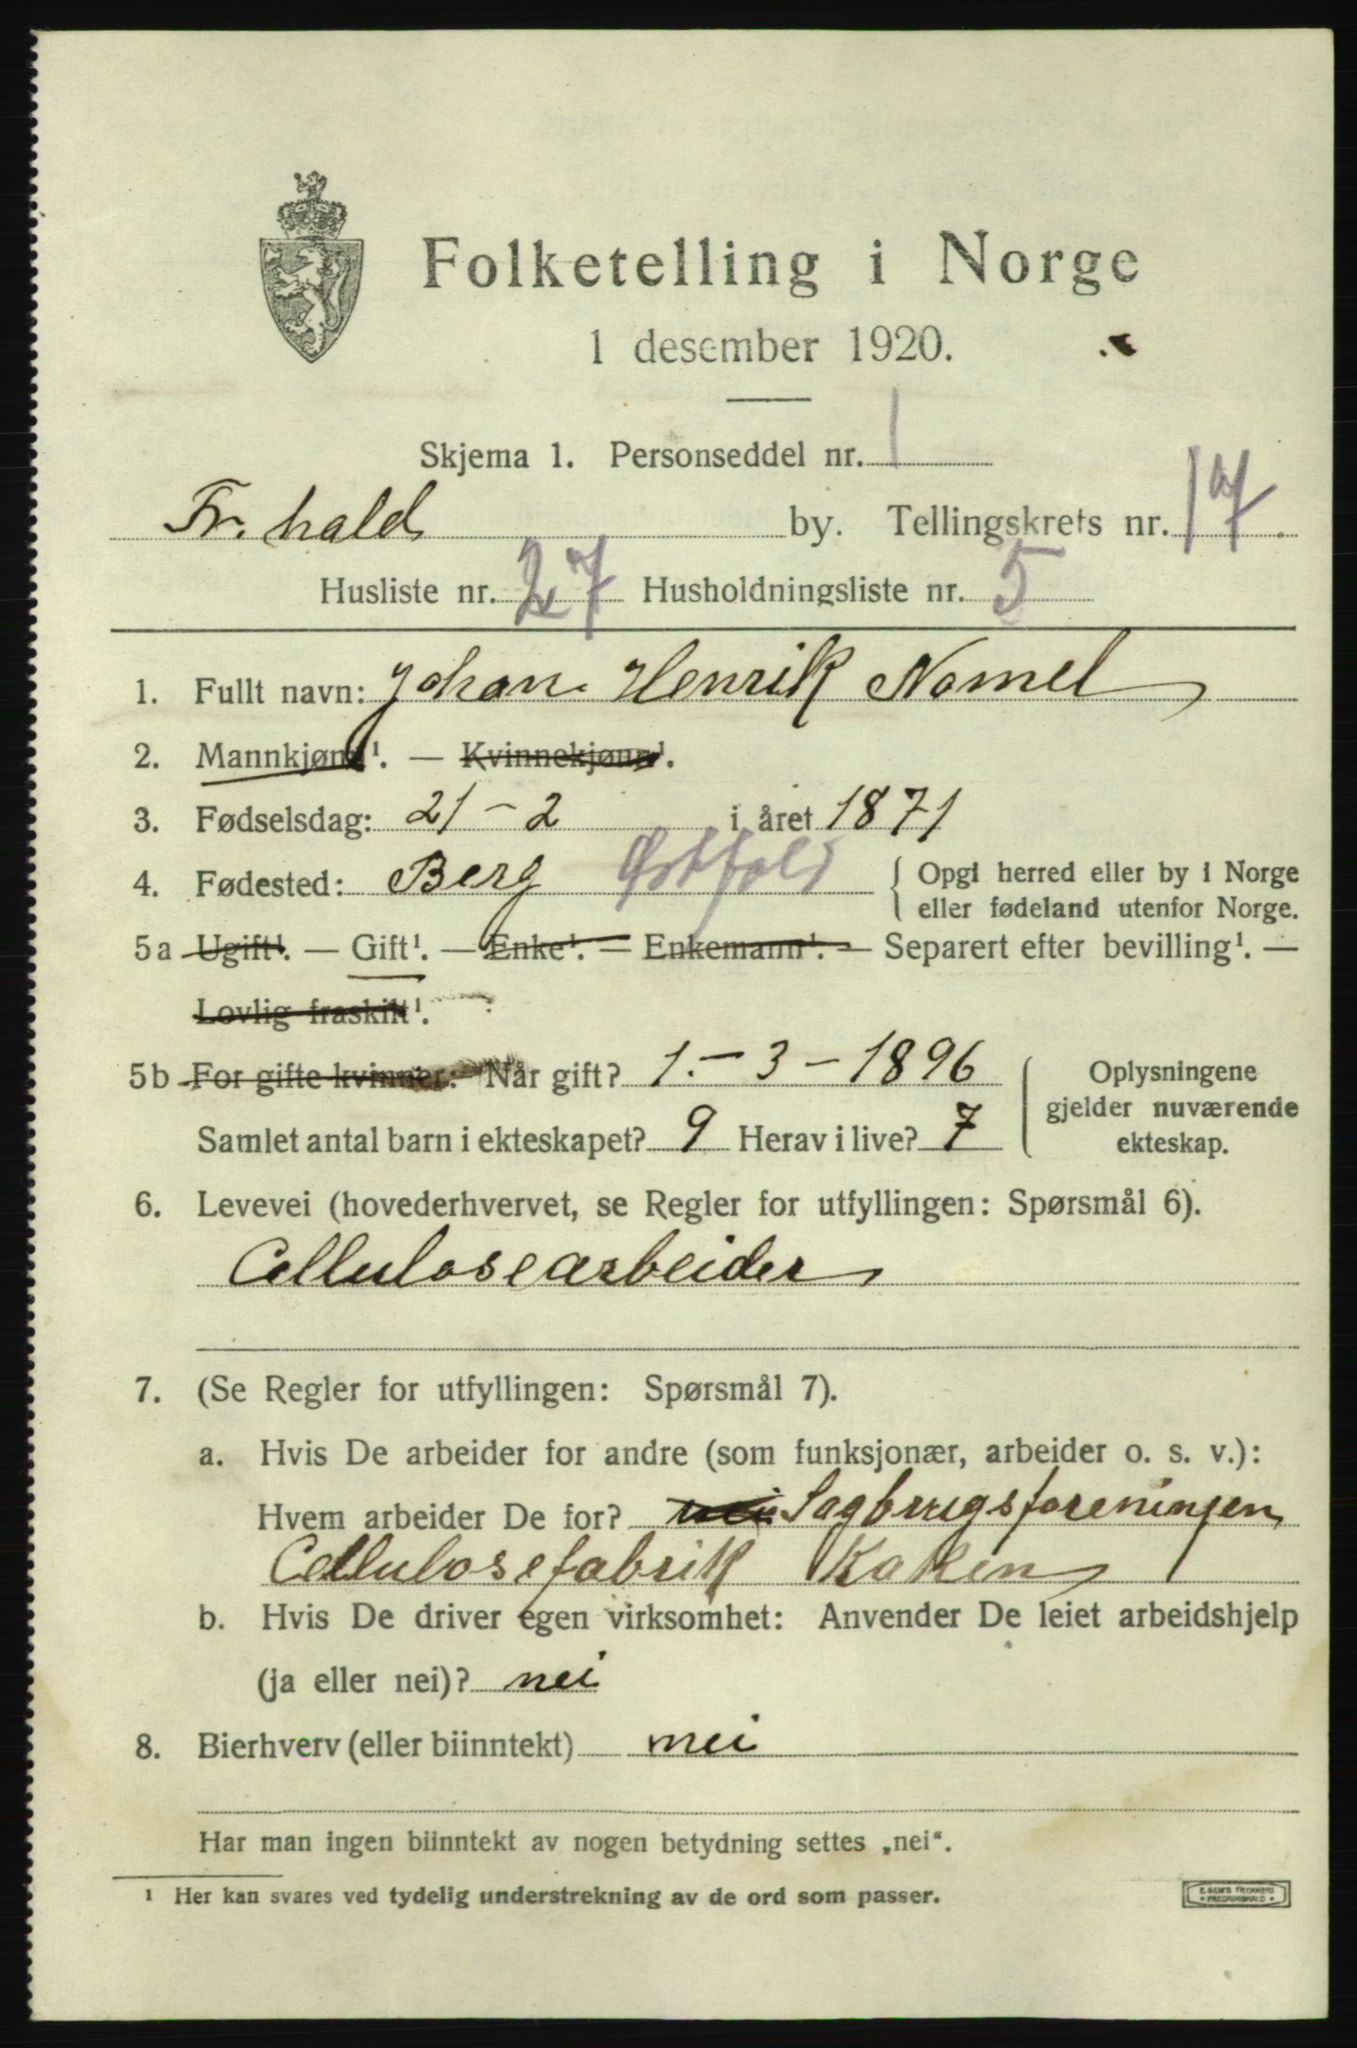 Folketelling i Norge
1 desember 1920.
Skjema 1. Personseddel nr. 1
Fr.hald by. Tellingskrets nr. 17.
Husliste nr. 27 Husholdningsliste nr. 5
1. Fullt navn: Johan Henrik Nomel
2. Mannkjønn¹. — Kvinnekjønn¹.
3. Fødselsdag: 21 - 2 i året 1871
4. Fødested: Berg Østfold { Opgi herred eller by i Norge
eller fødeland utenfor Norge.
5a Ugift¹. — Gift¹. — Enke¹. — Enkemann¹. — Separert efter bevilling¹. —
Lovlig fraskilt¹.
5b For gifte kvinner: Når gift? 1. - 3 - 1896
Samlet antal barn i ekteskapet? 9 Herav i live? 7
Oplysningene
gjelder nuværende
ekteskap.
6. Levevei (hovederhvervet, se Regler for utfyllingen: Spørsmål 6).
Cellulosearbeider
7. (Se Regler for utfyllingen: Spørsmål 7).
a. Hvis De arbeider for andre (som funksjonær, arbeider o. s. v.):
Hvem arbeider De for? nei Sagbrugsforeningen
Cellulosefabrik Kaken
b. Hvis De driver egen virksomhet: Anvender De leiet arbeidshjelp
(ja eller nei)? nei
8. Bierhverv (eller biinntekt) nei
Har man ingen biinntekt av nogen betydning settes „nei“.
¹ Her kan svares ved tydelig understrekning av de ord som passer.
E. SEM'S TRYKKERI
FREDRIKSHALD